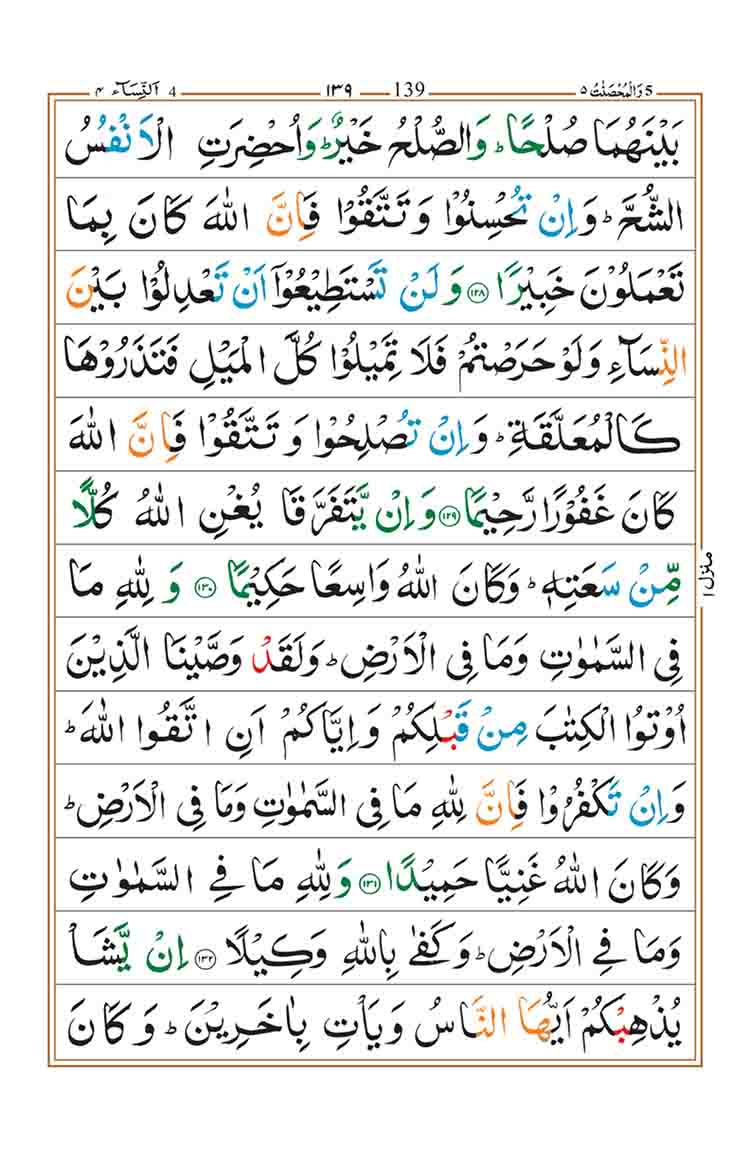 5 وَالْمُحْصَنٰتُ ٥ 139 ١٣٩ 4 اَلنِّسَآء ٤
بَيْنَهُمَا صُلْحًا ؕ وَالصُّلْحُ خَيْرٌ ؕ وَاُحْضِرَتِ الْاَنْفُسُ
الشُّحَّ ؕ وَاِنْ تُحْسِنُوْا وَتَتَّقُوْا فَاِنَّ اللّٰهَ كَانَ بِمَا
تَعْمَلُوْنَ خَبِيْرًا ﴿١٢٨﴾ وَلَنْ تَسْتَطِيْعُوْۤا اَنْ تَعْدِلُوْا بَيْنَ
النِّسَآءِ وَلَوْ حَرَصْتُمْ فَلَا تَمِيْلُوْا كُلَّ الْمَيْلِ فَتَذَرُوْهَا
كَالْمُعَلَّقَةِ ؕ وَاِنْ تُصْلِحُوْا وَتَتَّقُوْا فَاِنَّ اللّٰهَ
كَانَ غَفُوْرًا رَّحِيْمًا ﴿١٢٩﴾ وَاِنْ يَّتَفَرَّقَا يُغْنِ اللّٰهُ كُلًّا
مِّنْ سَعَتِهٖ ؕ وَكَانَ اللّٰهُ وَاسِعًا حَكِيْمًا ﴿١٣٠﴾ وَلِلّٰهِ مَا
فِى السَّمٰوٰتِ وَمَا فِى الْاَرْضِ ؕ وَلَقَدْ وَصَّيْنَا الَّذِيْنَ
اُوْتُوا الْكِتٰبَ مِنْ قَبْلِكُمْ وَاِيَّاكُمْ اَنِ اتَّقُوا اللّٰهَ ؕ
وَاِنْ تَكْفُرُوْا فَاِنَّ لِلّٰهِ مَا فِى السَّمٰوٰتِ وَمَا فِى الْاَرْضِ ؕ
وَكَانَ اللّٰهُ غَنِيًّا حَمِيْدًا ﴿١٣١﴾ وَلِلّٰهِ مَا فِى السَّمٰوٰتِ
وَمَا فِى الْاَرْضِ ؕ وَكَفٰى بِاللّٰهِ وَكِيْلًا ﴿١٣٢﴾ اِنْ يَّشَاْ
يُذْهِبْكُمْ اَيُّهَا النَّاسُ وَيَاْتِ بِاٰخَرِيْنَ ؕ وَكَانَ
منزل ١